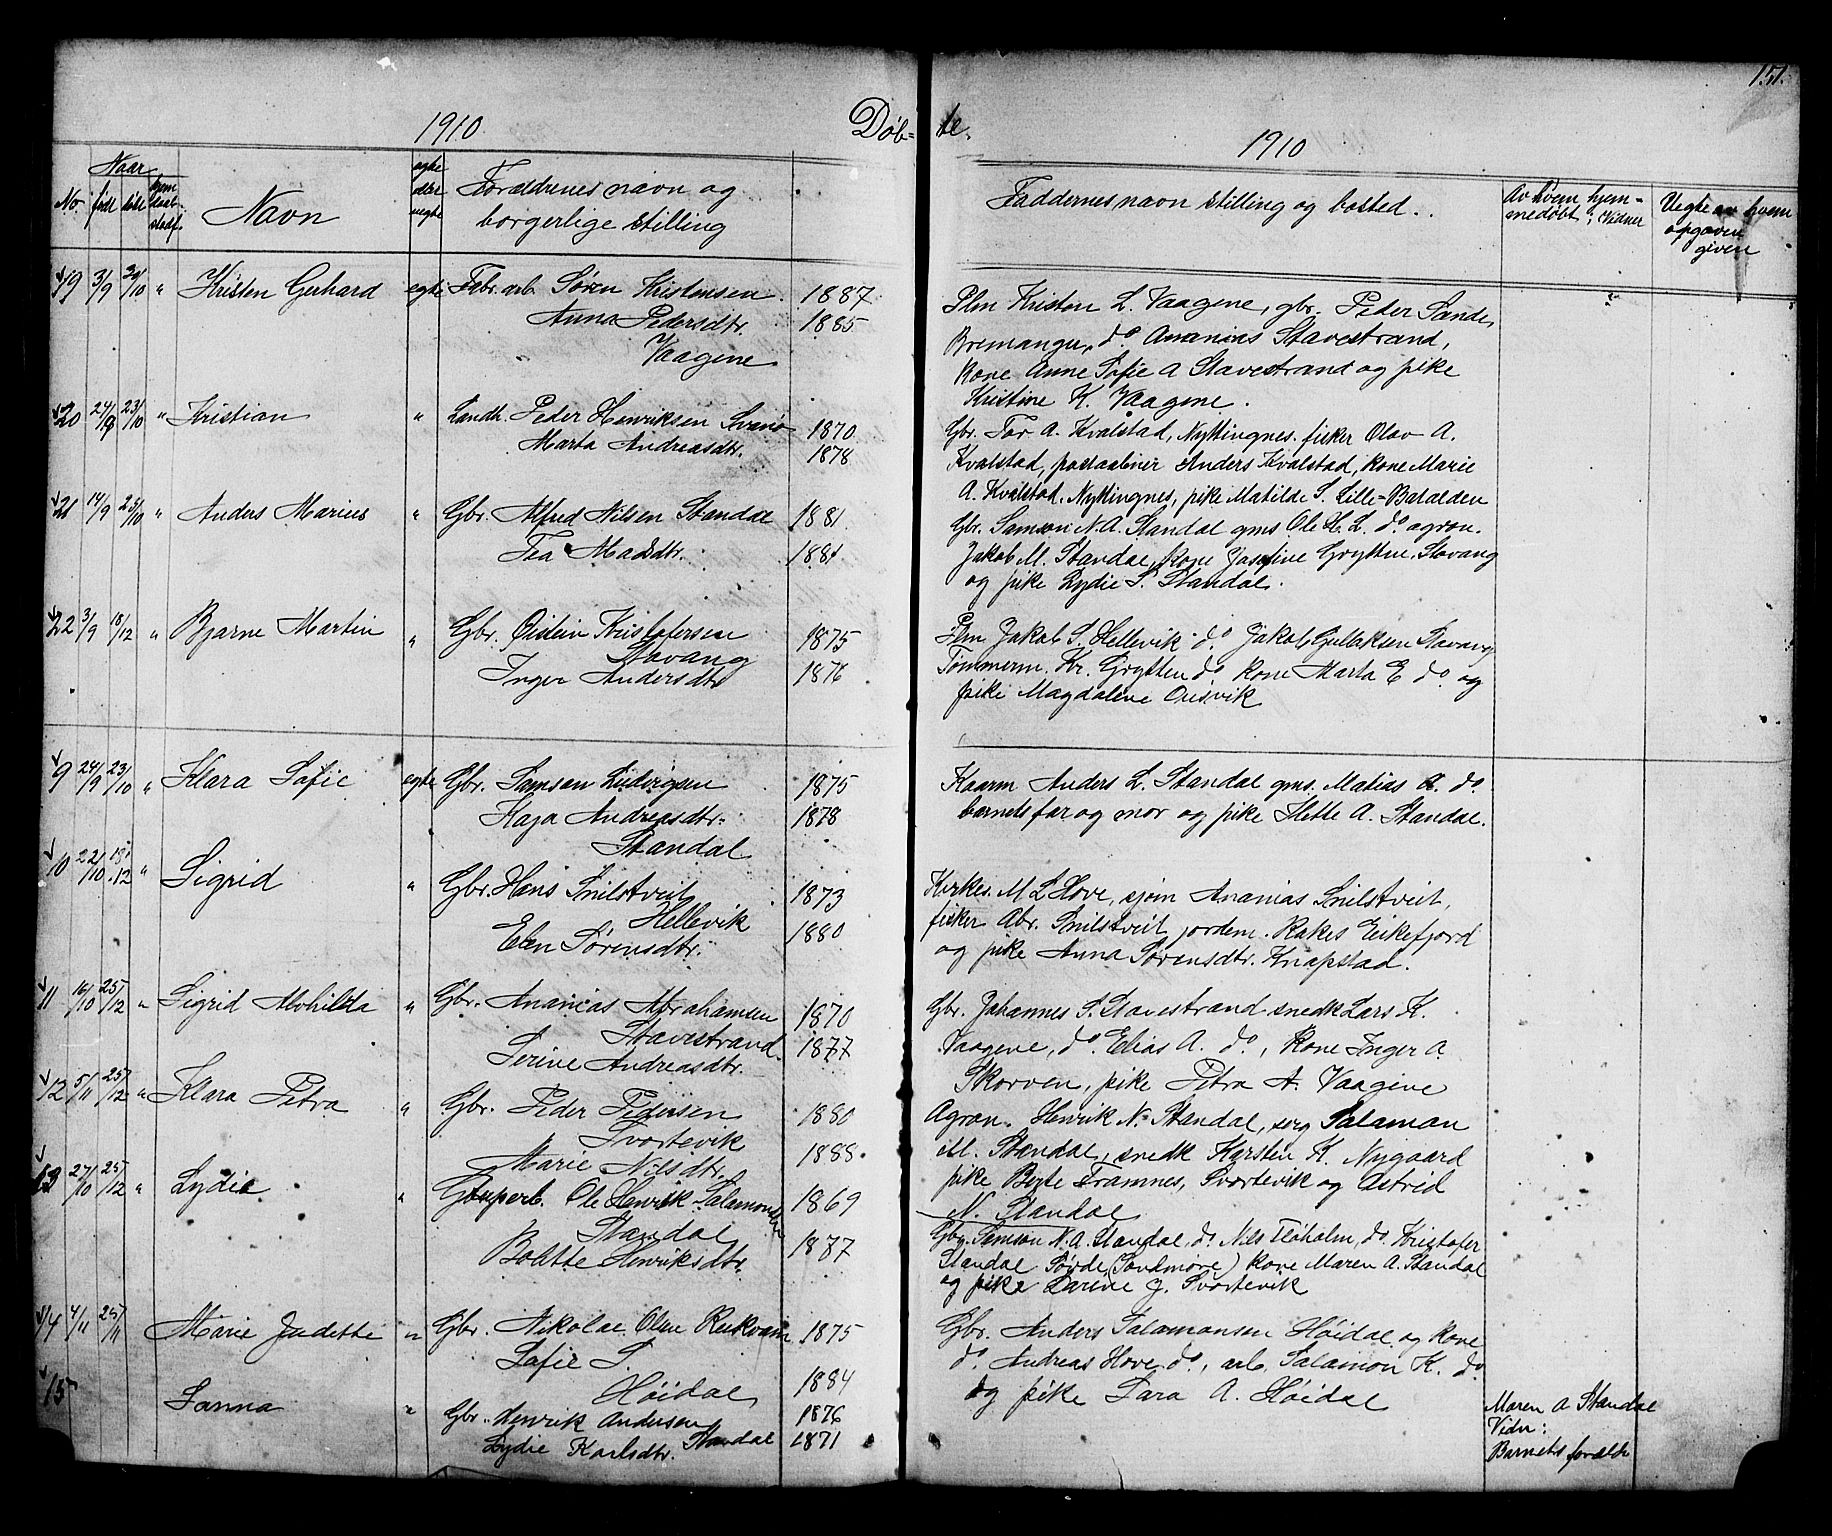 151.
1910. Døb= te. 1910
No. Naar født døbt hjem stadf. Navn egte eller uegte Forældrenes navn og borgerlige stilling
Faddernes navn stilling og bosted.. Av hvem hjemmedøbt; Vidner Uegte av hvem opgaven given
19 3/9 30/10 " Kristen Gerhard egte Fabr. arb. Søren Kristensen 1887
Anna Pedersdtr. 1885
Vaagene
Plm Kristen L. Vaagene, gbr. Peder Sande,
Bremanger, do Ananias Stavestrand,
kone Anne Sofie A Stavestrand og pike
Kristine K. Vaagene.
20 24/9 23/10 " Kristian " Landh. Peder Henriksen Svanø 1870
Marta Andreasdtr. 1878
Gbr. Tor A. Kvalstad, Nyttingnes. fisker Olav A.
Kvalstad, postaabner Anders Kvalstad, kone Marie
A. Kvalstad. Nyttingnes, pike Matilde S. Lille-Batalden
21 14/9 25/10 " Anders Marius " Gbr. Alfred Nilsen Standal 1881
Tea Madsdtr. 1881
Gbr. Samson N. A. Standal gms Ole H. L. do agron.
Jakob M. Standal, kone Josefine Grytten, Stavang
og pike Lydie S. Standal.
22 3/9 18/12 " Bjarne Martin " Gbr. Øistein Kristofersen 1875
Stavang
Inger Andersdtr 1876
Plm Jakob S. Hellevik do Jakob Gullaksen Stavang
Tømmerm. Kr. Grytten do kone Marta E do og
pike Magdalene Onsvik
9 24/9 23/10 " Klara Sofie egte Gbr. Samson Ludvigsen 1875
Kaja Andreasdtr. 1878
Standal
Kaarm Anders L. Standal gms. Matias A. do
barnets far og mor og pike Mette A. Standal.
10 22/10 18/12 " Sigrid " Gbr. Hans Snilstveit 1873
Hellevik
Elen Sørensdtr. 1880
Kirkes. M L Hove, sjøm Ananias Snilstveit,
fisker Abr. Snilstveit jordem. Rakes Eikefjord
og pike Anna Sørensdtr. Knapstad.
11 16/10 25/12 " Sigrid Alvhilda " Gbr. Ananias Abrahamsen 1870
Stavestrand
Serine Andreasdtr. 1877
Gbr. Johannes S. Stavestrand snedk Lars K.
Vaagene, do. Elias A. do, kone Inger A.
Skorven, pike Petra A. Vaagene
12 5/11 25/12 " Klara Petra " Gbr. Peder Pedersen 1880
Svortevik
Marie Nilsdtr. 1888.
Agron. Henrik N. Standal, serg Salamon
M. Standal, snedk Karsten K. Nygaard
pike Berte Framnes, Svortevik og Astrid
N. Standal
13 27/10 25/12 " Lydie " Gbuperb. Ole Henrik Salamonsen 1869
Standal
Bolette Henriksdtr. 1877
Gbr. Samson N. A. Standal, do. Nils Fløholm, do. Kristofer
Standal Søvde (Søndmøre) kone Maren A. Standal
og pike Larine J. Svortevik
14 4/11 25/11 Marie Judette " Gbr. Nikolai Olsen Reikvam 1875
Sofie S.
Høidal 1884
Gbr. Anders Salamonsen Høidal og kone
do. Andreas Hove do, arb. Salamon K. do
og pike Sara A. Høidal
15 Sanna " Gbr. Henrik Andersen 1876
Lydie Karlsdtr. Standal 1871
Maren A Standal
Vidn:
Barnets foreldr